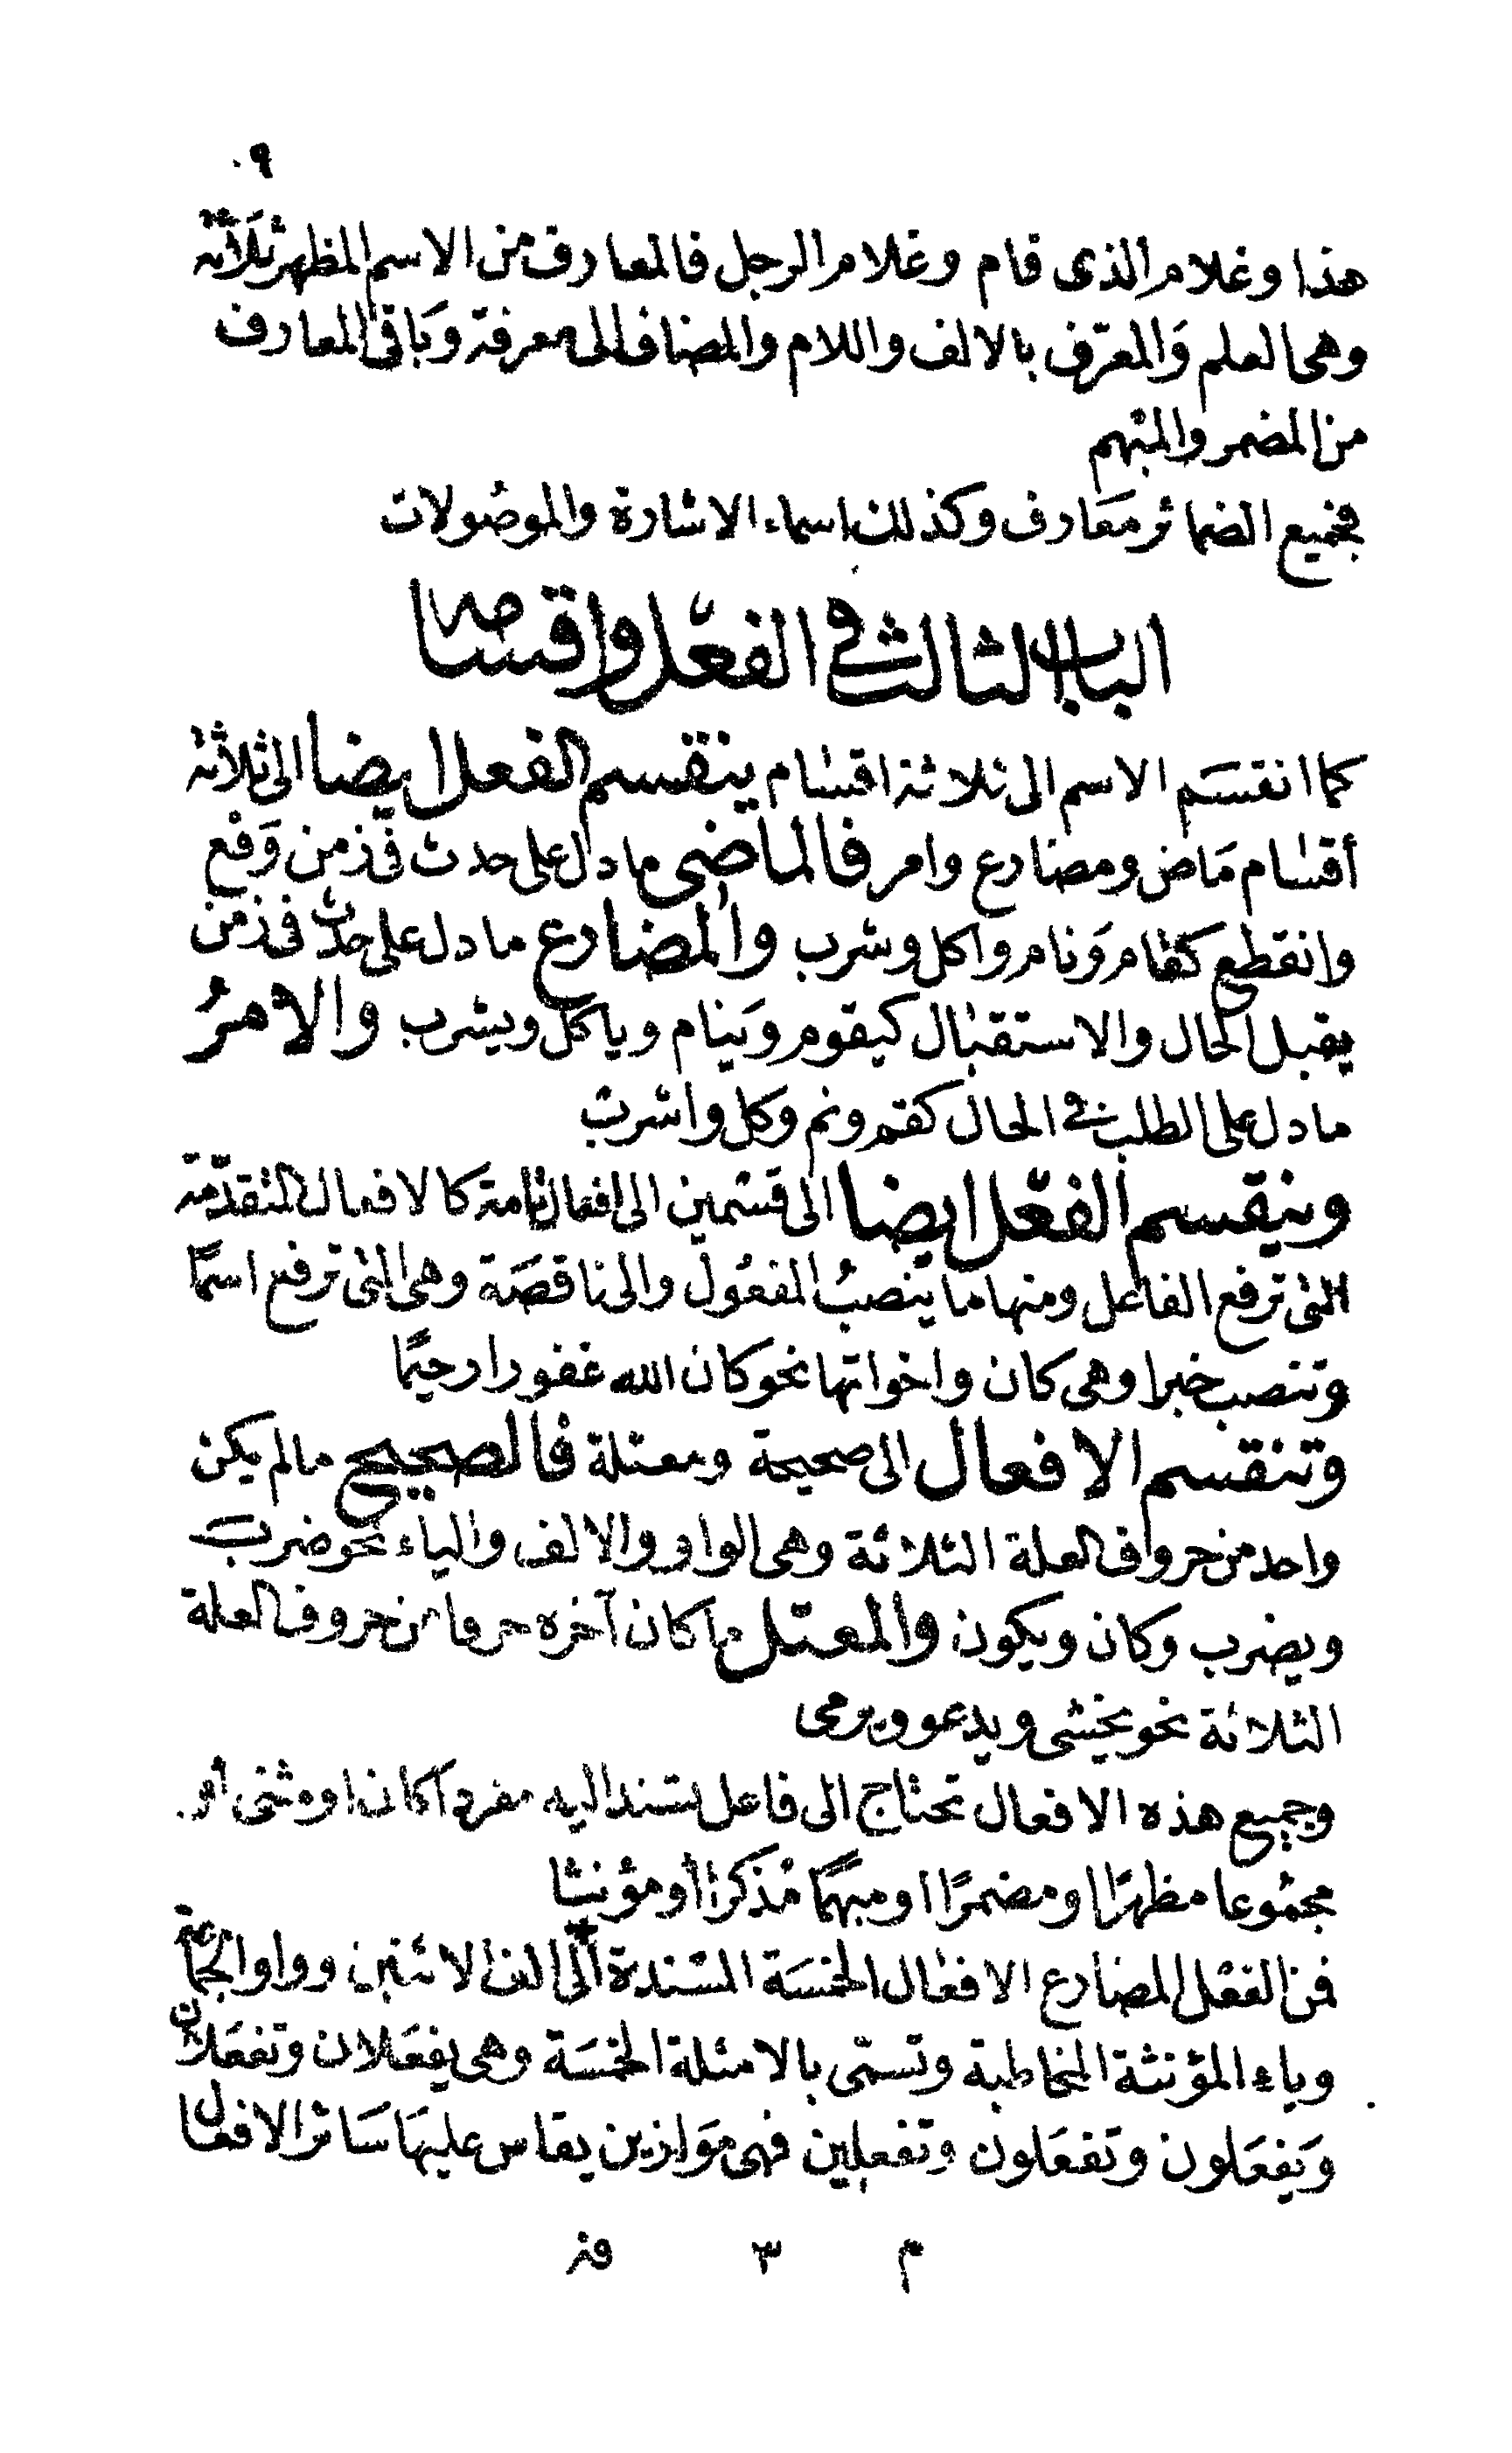 ٩
هذا وغلام الذى قام وغلام الرجل فالمعارف من الاسم المظهر ثلاثة
وهى العلم والمعرّف بالالف واللام والمضاف الى معرفة وباقى المعارف
من المضمر والمبهم
فجميع الضمائر معارف وكذلك اسماء الاشارة والموصولات
الباب الثالث فى الفعل واقسامه
كما انقسم الاسم الى ثلاثة اقسام ينقسم الفعل ايضا الى ثلاثة
أقسام ماض ومضارع وامر فالماضى ما دل على حدث فى زمن وقع
وانقطع كقام ونام واكل وشرب والمضارع ما دل على حدث فى زمن
يقبل الحال والاستقبال كيقوم وينام وياكل ويشرب والامرُ
ما دل على الطلب فى الحال كقم ونم وكل واشرب
وينقسم الفعل ايضا الى قسمين الى افعال تامة كالافعال المتقدّمة
التى ترفع الفاعل ومنها ما ينصبُ المفعُول والى ناقصَة وهى التى ترفع اسمًا
وتنصب خبرا وهى كان واخواتها نحو كان الله غفورا رحيمًا
وتنقسم الافعال الى صحيحة ومعتلة فالصحيح مالم يكن
واحد من حروف العلة الثلاثة وهى الواو والالف والياء نحو ضرب
ويضرب وكان ويكون والمعتل ما كان آخره حرفا من حروف العلة
الثلاثة نحو يخشى ويدعو ويرمى
وجميع هذه الافعال تحتاج الى فاعل تسند اليه مفردا كان او مثنى أو
مجمُوعا مظهرًا ومضمرًا او مبهمًا مُذكرًا أو مؤنثا
فمن الفعْل المضارع الافعال الخمسَة المسْندة الى الف الاثنين وواو الجماعة
وياء المؤنثة المخاطبة وتسمّى بالامثلة الخمسَة وهى يفعَلان وتفعَلان
وَيفعَلون وتفعَلون وتفعلين فهى مَوَازين يقاس عليهَا سَائر الافعال
م ٣ فتـ